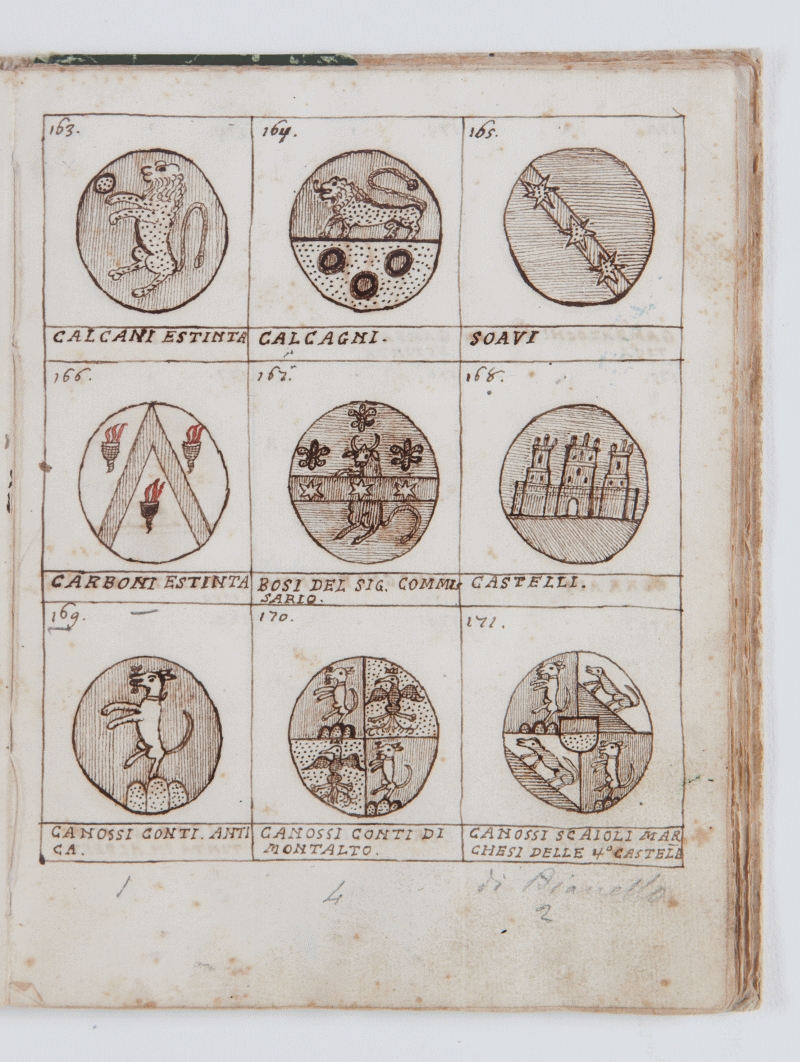 163. 164. 165.
CALCANI ESTINTA CALCAGNI. SOAVI
166. 167. 168.
CARBONI ESTINTA BOSI DEL SIG. COMMIS CASTELLI.
SARIO.
169. 170. 171.
CANOSSI CONTI. ANTI CANOSSI CONTI DI CANOSSI SCAIOLI MAR
CA. MONTALTO. CHESI DELLE 4º CASTELE
1 4 di Bianello
2